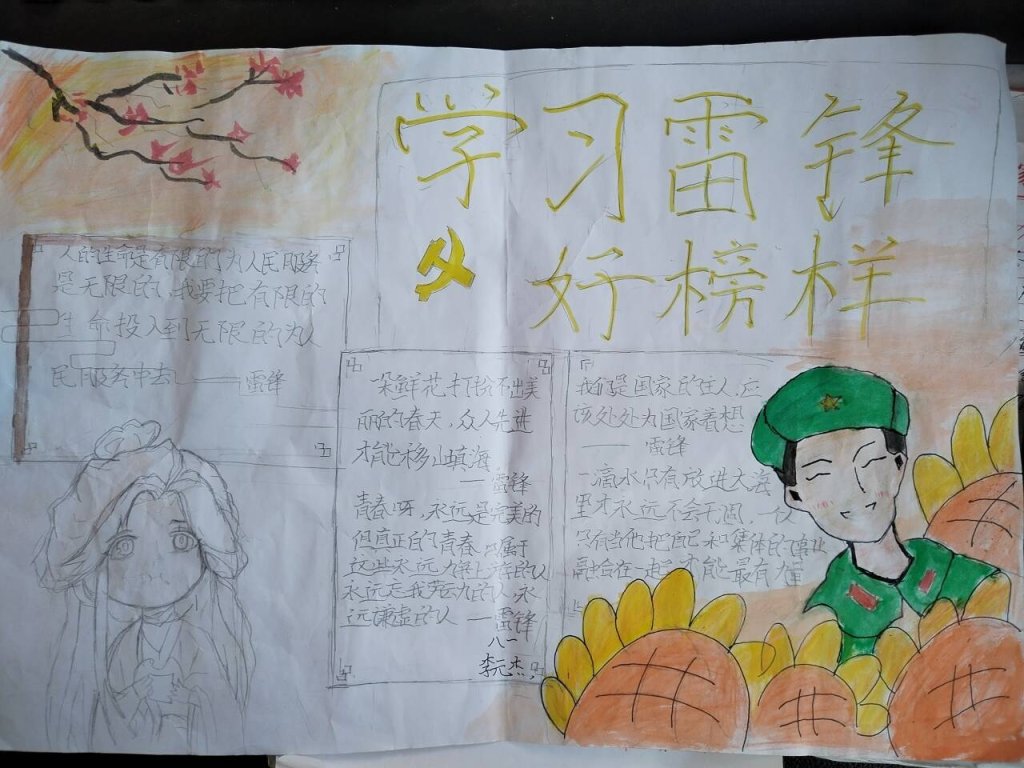 学习雷锋
好榜样
人的生命是有限的,为人民服务
是无限的,我要把有限的
生命投入到无限的为人
民服务中去——雷锋
一朵鲜花打扮不出美
丽的春天,众人先进
才能移山填海
——雷锋
青春呀,永远是完美的
但真正的青春只属于
这些永远力争上游的人
永远忘我劳动的人,永
远谦虚的人——雷锋
八一
李元杰
我们是国家的主人,应
该处处为国家着想
——雷锋
一滴水只有放进大海
里才永远不会干涸,一
只有当他把自己和集体的事业
融合在一起才能最有力量